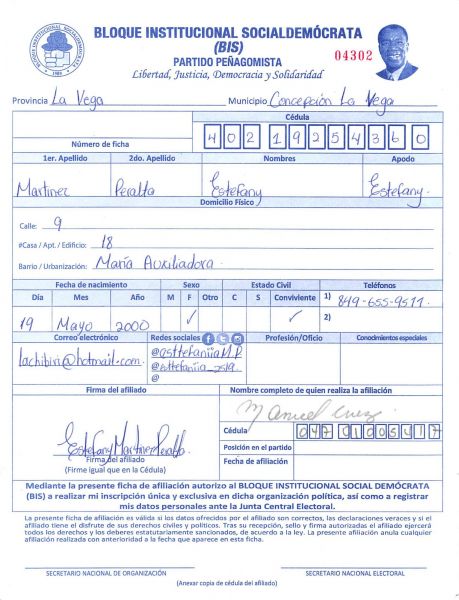 BLOQUE INSTITUCIONAL SOCIALDEMÓCRATA
(BIS)
PARTIDO PEÑAGOMISTA
Libertad, Justicia, Democracia y Solidaridad
04302
Provincia La Vega Municipio Concepción La Vega
Cédula
Número de ficha 402 1925436 0
1er. Apellido 2do. Apellido Nombres Apodo
Martinez Peralta Estefany Estefany.
Domicilio Físico
Calle: 9
#Casa / Apt. / Edificio: 18
Barrio / Urbanización: María Auxiliadora.
Fecha de nacimiento Sexo Estado Civil Teléfonos
Día Mes Año M F Otro C S Conviviente 1) 849-655-9511.
19 Mayo 2000 ✓ ✓ 2)
Correo electrónico Redes sociales Profesión/Oficio Conodmientos especiales
lachibiri@hotmail.com.
@esttefaniia_2519.
@
Firma del afiliado Nombre completo de quien realiza la afiliación
Manuel Cruz
Cédula 047 0100541 7
Estefany Martinez Peralta
Posición en el partido
Firma del afiliado
(Firme igual que en la Cédula)
Fecha de afiliación
Mediante la presente ficha de afiliación autorizo al BLOQUE INSTITUCIONAL SOCIAL DEMÓCRATA
(BIS) a realizar mi inscripción única y exclusiva en dicha organización política, así como a registrar
mis datos personales ante la Junta Central Electoral.
La presente ficha de afiliación es válida si los datos ofrecidos por el afiliado son correctos, las declaraciones veraces y si el
afiliado tiene el disfrute de sus derechos civiles y políticos. Tras su recepción, sello y firma autorizados el afiliado ejercerá
todos los derechos y los deberes estatutariamente sancionados, de acuerdo a la ley. La presente afiliación anula cualquier
afiliación realizada con anterioridad a la fecha que aparece en esta ficha.
SECRETARIO NACIONAL DE ORGANIZACIÓN SECRETARIO NACIONAL ELECTORAL
(Anexar copia de cédula del afiliado)